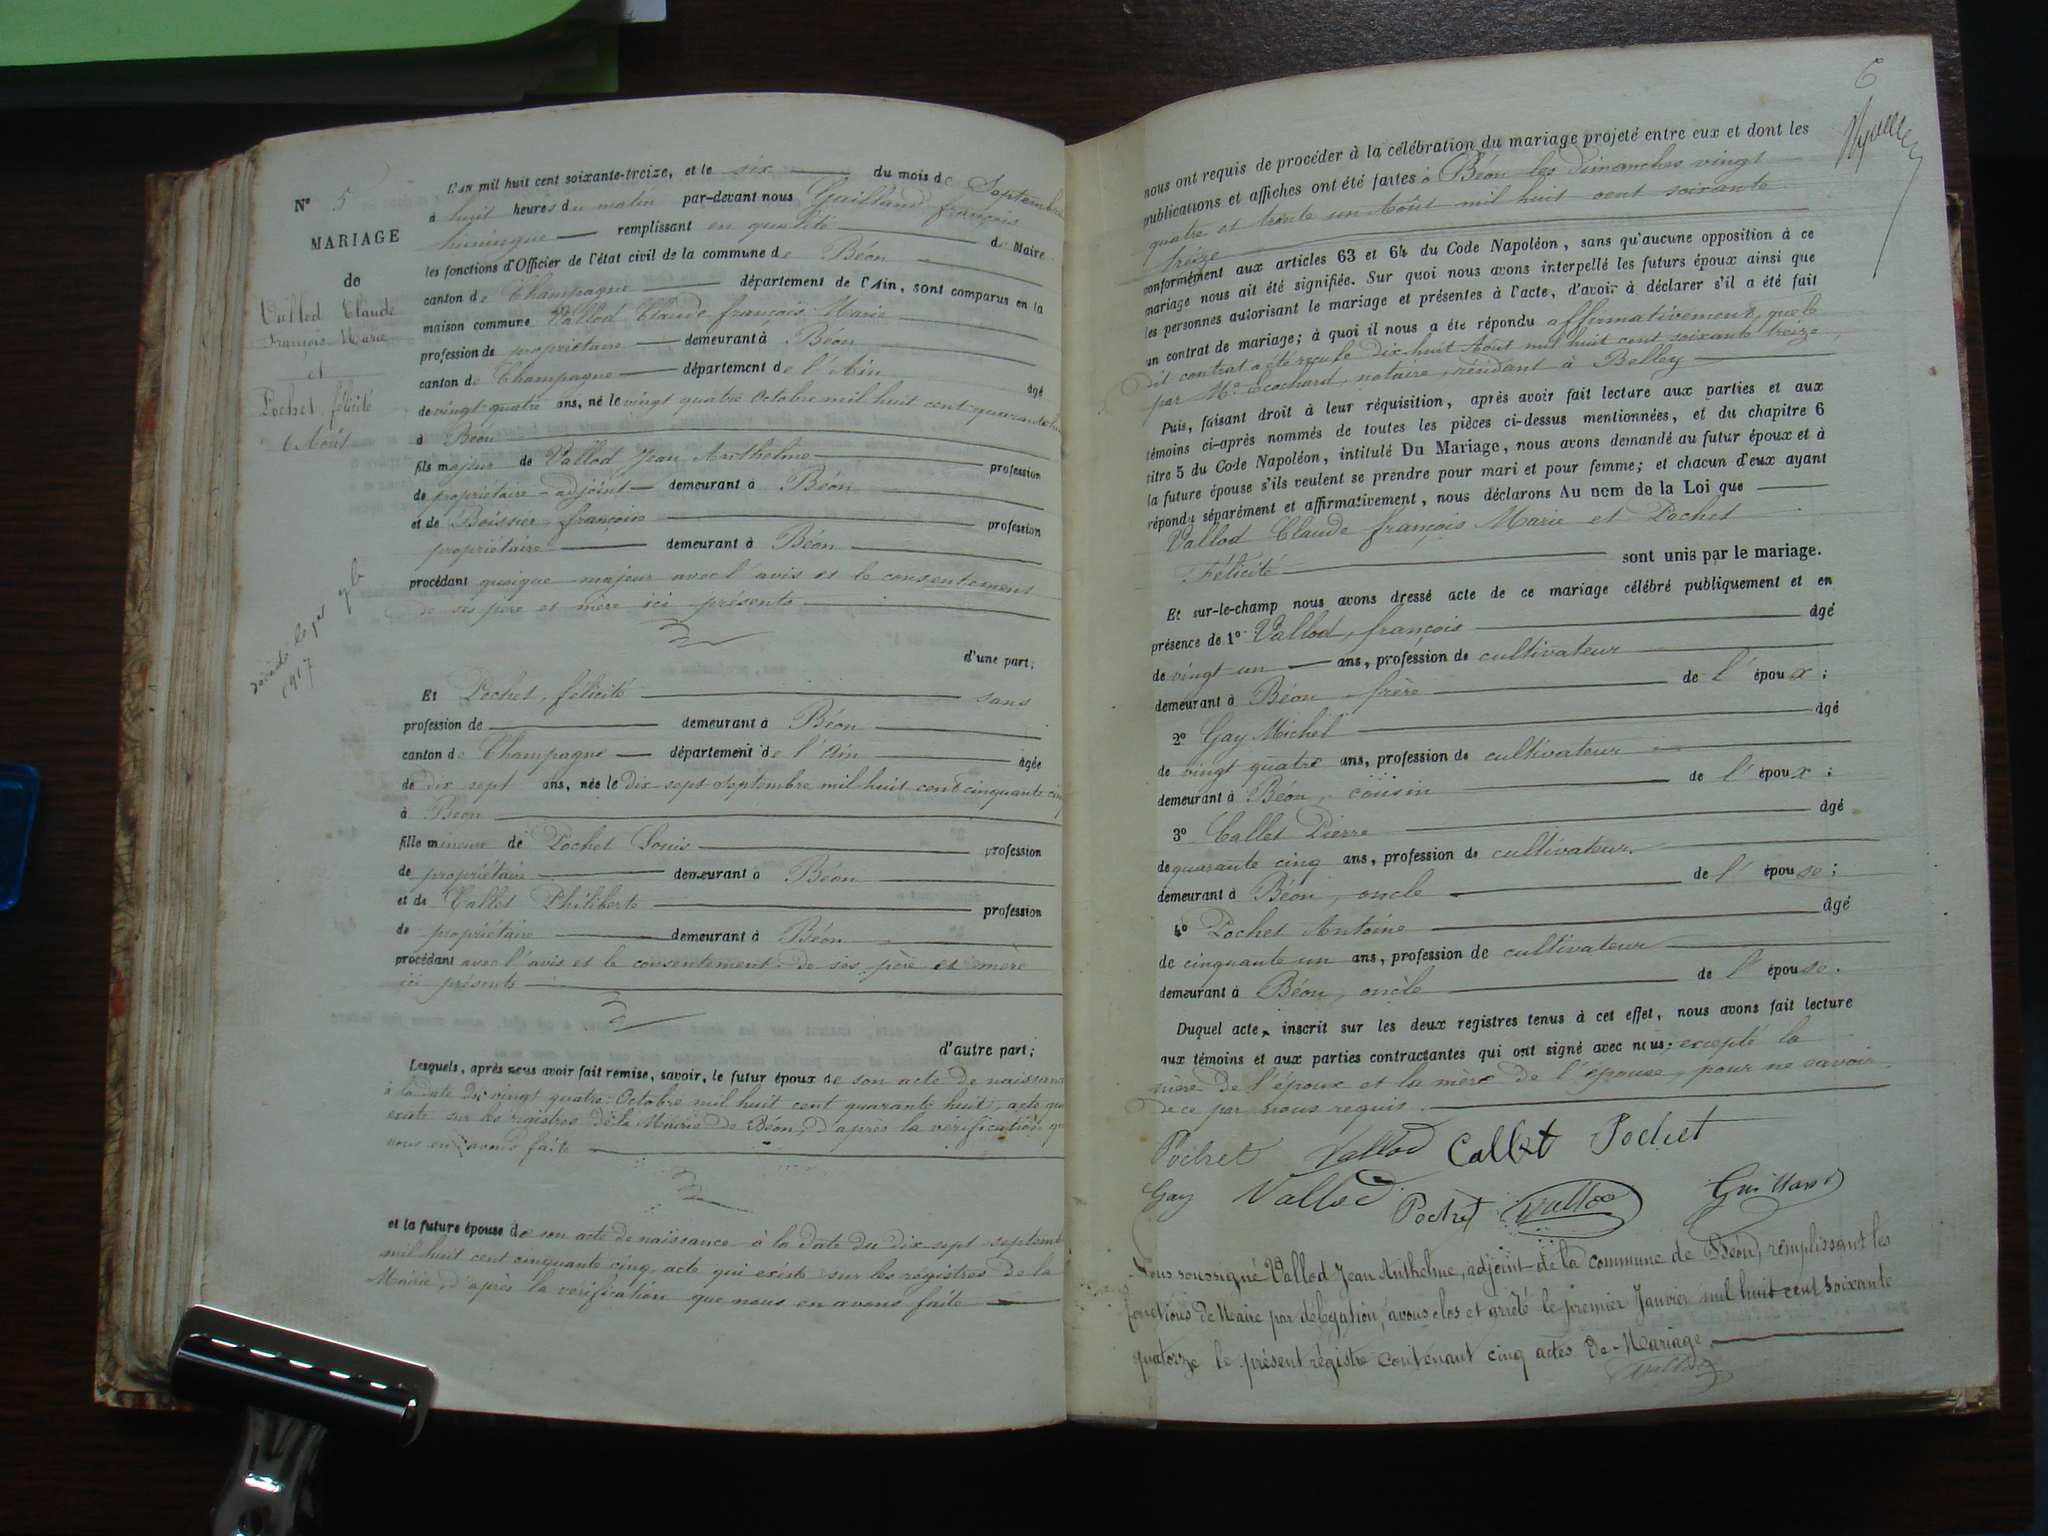 N° 5
MARIAGE
de
Vallod Claude
François Marie
et
Pochet félicité
6 Août
1917
L'an mil huit cent soixante-treize, et le six du mois de Septembre
à huit heures du matin par-devant nous Guilland françois
remplissant en qualité de Maire
les fonctions d'Officier de l'état civil de la commune de Béon
canton de Champagne département de l'Ain, sont comparus en la
maison commune Vallod Claude françois Marie
profession de propriétaire demeurant à Béon
canton de Champagne département de l'Ain âgé
de vingt quatre ans, né le vingt quatre Octobre mil huit cent quarante
à Béon
fils majeur de Vallod Jean Anthelme profession
de propriétaire - adjoint demeurant à Béon
et de Boissier françoise profession
propriétaire demeurant à Béon
procédant quoique majeur avec l'avis et le consentement
de ses père et mère ici présents
d'une part;
Et Pochet, félicité sans
profession de demeurant à Béon
canton de Champagne département de l'Ain âgée
de dix sept ans, née le dix sept Septembre mil huit cent cinquante cinq
à Béon
fille mineure de Pochet Louis profession
de propriétaire demeurant à Béon
et de Callet Philiberte profession
de propriétaire demeurant à Béon
procédant avec l'avis et le consentement de ses père et mère
ici présents
d'autre part;
Lesquels, après nous avoir fait remise, savoir, le futur époux de son acte de naissance
à la date du vingt quatre Octobre mil huit cent quarante huit, acte qui
existe sur les registres de la Mairie de Béon, d'après la vérification que
nous en avons faite
et la future épouse de son acte de naissance à la date du dix sept septembre
mil huit cent cinquante cinq, acte qui existe sur les régistres de la
Mairie, d'après la vérification que nous en avons faite
6
nous ont requis de procéder à la célébration du mariage projeté entre eux et dont les
publications et affiches ont été faites à Béon les dimanches vingt
quatre et trente un Août mil huit cent soixante
treize
conformément aux articles 63 et 64 du Code Napoléon, sans qu'aucune opposition à ce
mariage nous ait été signifiée. Sur quoi nous avons interpellé les futurs époux ainsi que
les personnes autorisant le mariage et présentes à l'acte, d'avoir à déclarer s'il a été fait
un contrat de mariage; à quoi il nous a été répondu affirmativement, que le
dit contrat a été reçu le dix huit Août mil huit cent soixante treize,
par Me Cochard, notaire, résidant à Belley
Puis, faisant droit à leur réquisition, après avoir fait lecture aux parties et aux
témoins ci-après nommés de toutes les pièces ci-dessus mentionnées, et du chapitre 6
titre 5 du Code Napoléon, intitulé Du Mariage, nous avons demandé au futur époux et à
la future épouse s'ils veulent se prendre pour mari et pour femme; et chacun d'eux ayant
répondu séparément et affirmativement, nous déclarons Au nom de la Loi que
Vallod Claude françois Marie et Pochet
Félicité sont unis par le mariage.
Et sur-le-champ nous avons dressé acte de ce mariage célébré publiquement et en
présence de 1° Vallod, françois âgé
de vingt un ans, profession de cultivateur
demeurant à Béon frère de l'époux;
2° Gay Michel âgé
de vingt quatre ans, profession de cultivateur
demeurant à Béon, cousin de l'époux;
3° Callet Pierre âgé
de quarante cinq ans, profession de cultivateur
demeurant à Béon, oncle de l'épouse;
4° Pochet Antoine âgé
de cinquante un ans, profession de cultivateur
demeurant à Béon, oncle de l'épouse.
Duquel acte, inscrit sur les deux registres tenus à cet effet, nous avons fait lecture
aux témoins et aux parties contractantes qui ont signé avec nous, excepté la
mère de l'époux et la mère de l'épouse, pour ne savoir
de ce par nous requis.
Pochet Vallod Callet Pochet
Gay Vallod Pochet Vallod Guilland
Nous soussigné Vallod Jean Anthelme, adjoint de la commune de Béon, remplissant les
fonctions de Maire par délégation, avons clos et arrêté le premier Janvier mil huit cent soixante
quatorze le présent régistre contenant cinq actes de Mariage.
Vallod